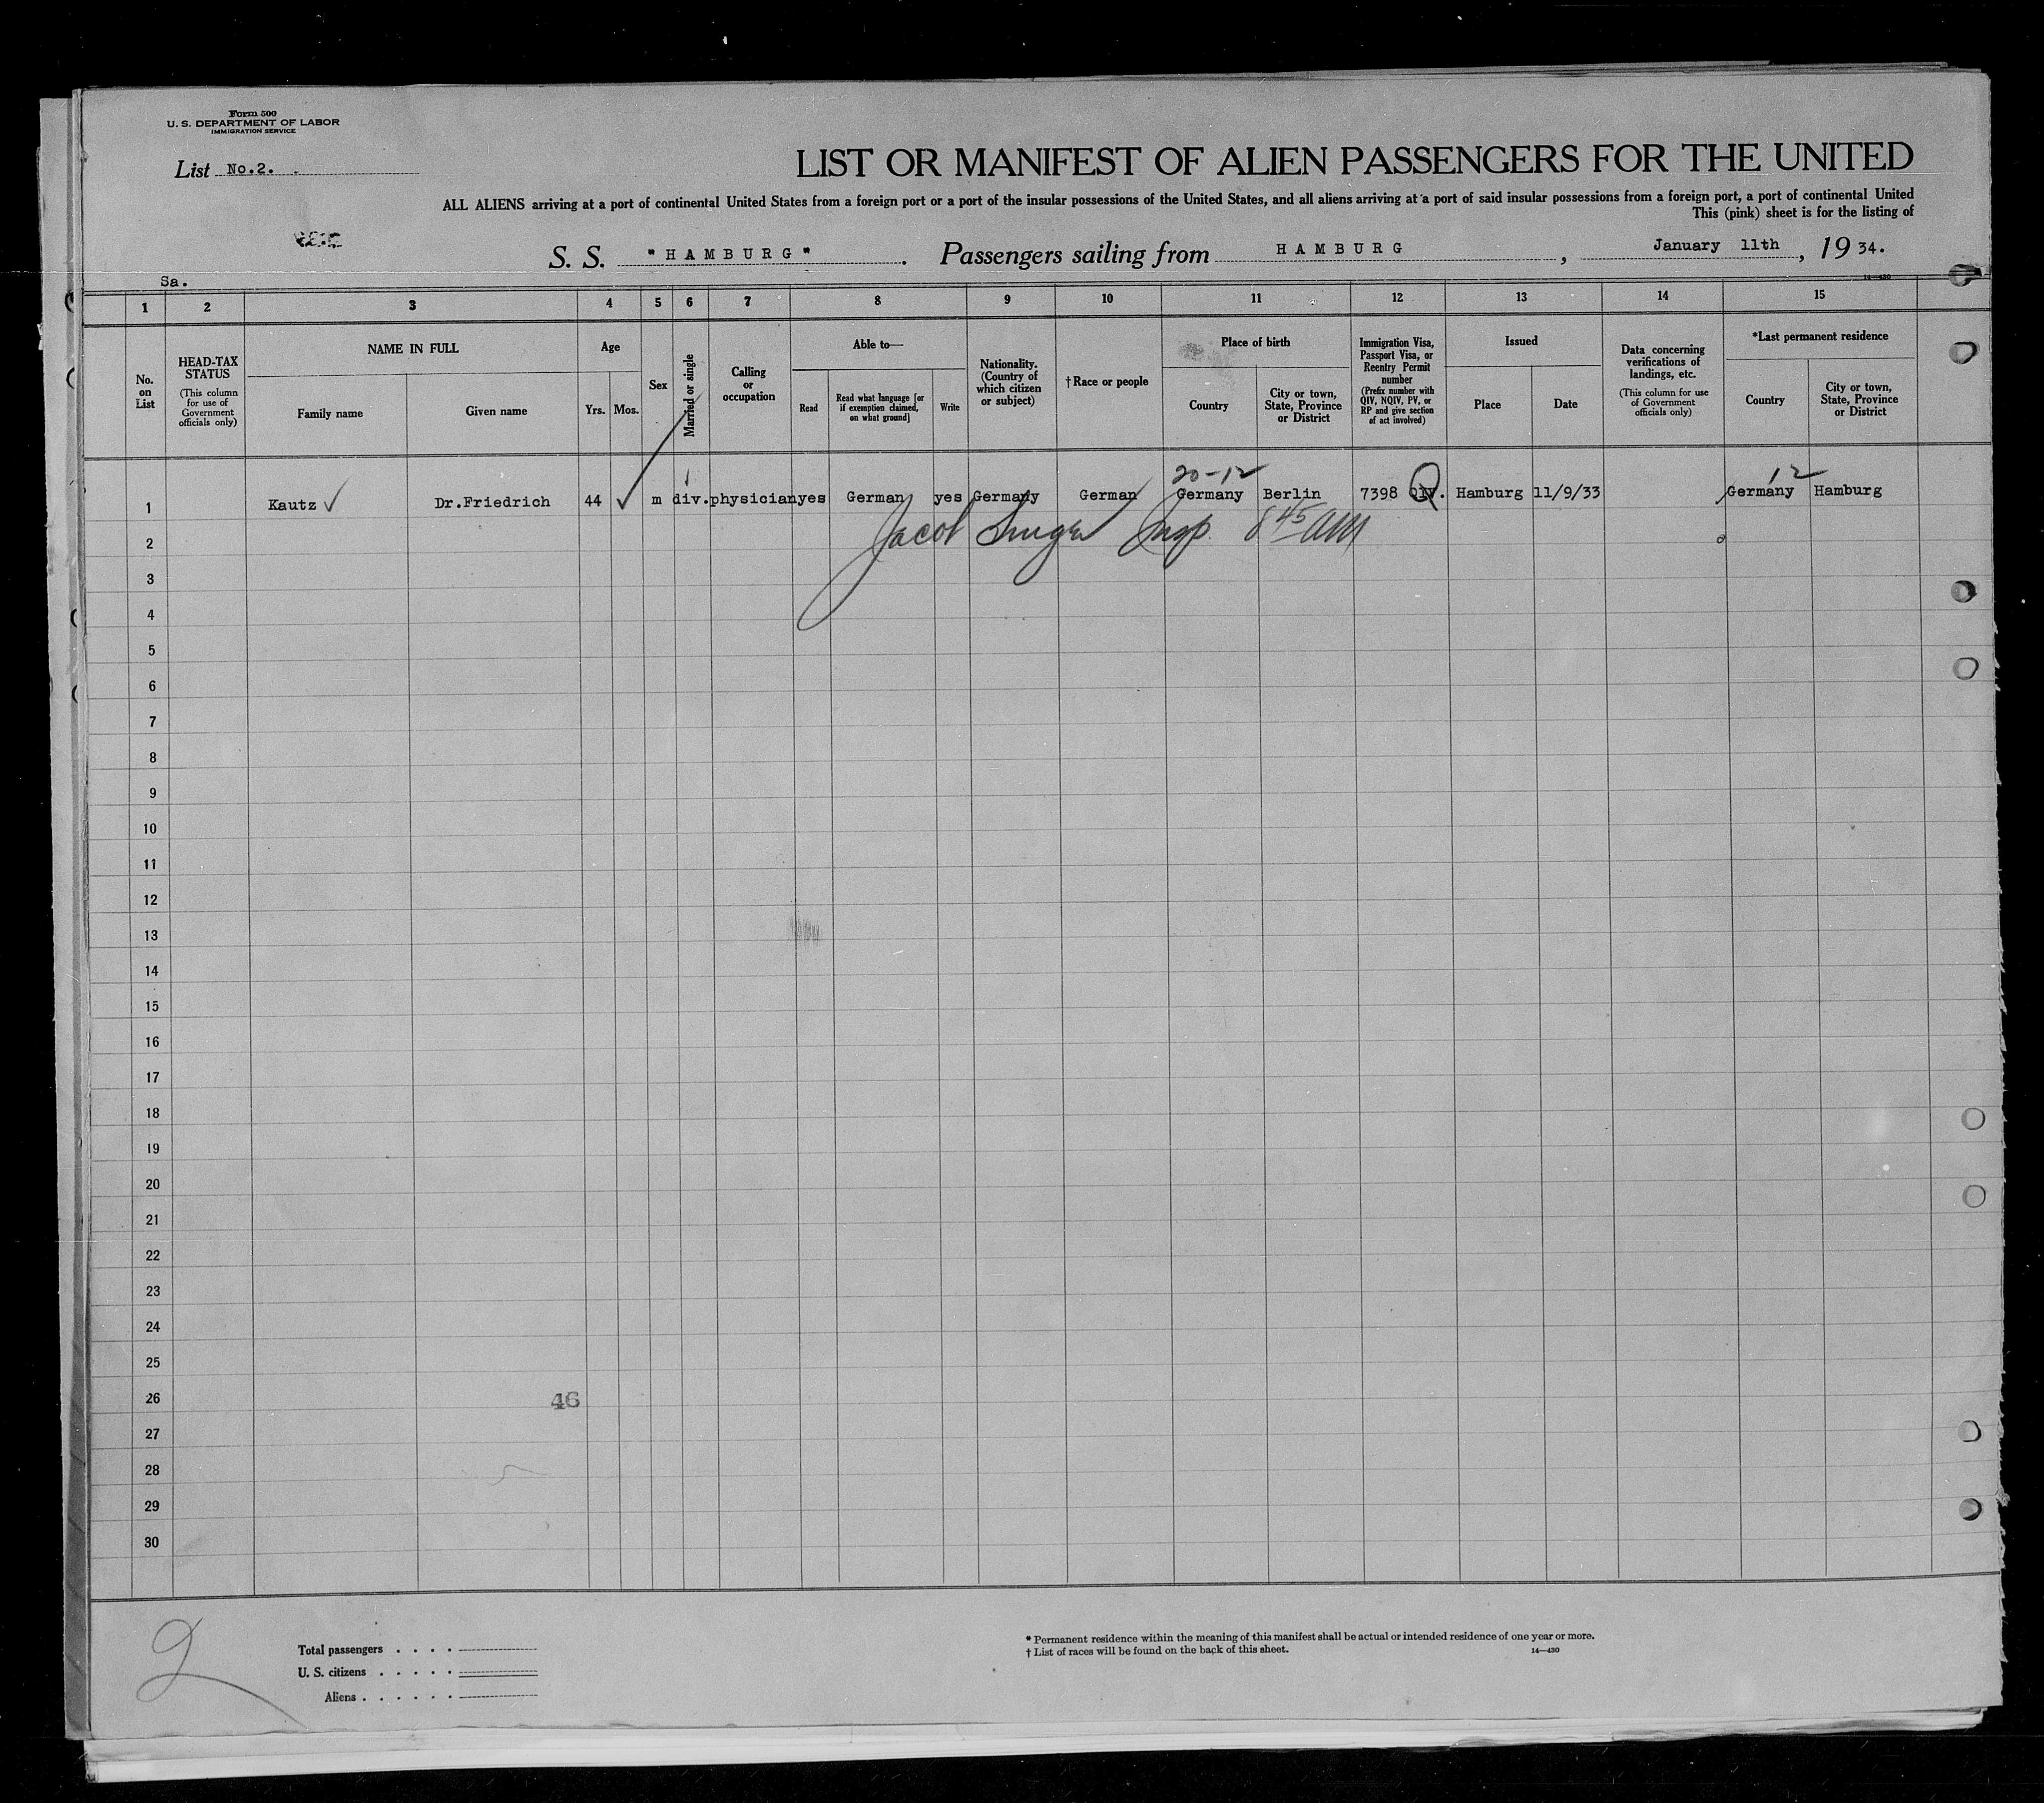 Form 500
U. S. DEPARTMENT OF LABOR
IMMIGRATION SERVICE
List No.2.
LIST OR MANIFEST OF ALIEN PASSENGERS FOR THE UNITED
ALL ALIENS arriving at a port of continental United States from a foreign port or a port of the insular possessions of the United States, and all aliens arriving at a port of said insular possessions from a foreign port, a port of continental United
This (pink) sheet is for the listing of
S. S. "HAMBURG". Passengers sailing from HAMBURG, January 11th, 1934.
14—430
Sa.
1 2 3 4 5 6 7 8 9 10 11 12 13 14 15
No. on List
HEAD-TAX STATUS
(This column for use of Government officials only)
NAME IN FULL
Family name
Given name
Age
Yrs.
Mos.
Sex
Married or single
Calling or occupation
Able to—
Read
Read what language [or if exemption claimed, on what ground]
Write
Nationality. (Country of which citizen or subject)
†Race or people
Place of birth
Country
City or town, State, Province or District
Immigration Visa, Passport Visa, or Reentry Permit number
(Prefix number with QIV, NQIV, PV, or RP and give section of act involved)
Issued
Place
Date
Data concerning verifications of landings, etc.
(This column for use of Government officials only)
*Last permanent residence
Country
City or town, State, Province or District
20-12
12
1 Kautz ✓ Dr.Friedrich 44 ✓ m div. physician yes German yes Germany German Germany Berlin 7398 QIV. Q Hamburg 11/9/33 Germany Hamburg
Jacob Insp. 8 45 AM
2
3
4
5
6
7
8
9
10
11
12
13
14
15
16
17
18
19
20
21
22
23
24
25
26
46
27
28
29
30
2
Total passengers . . . .
U. S. citizens . . . . .
Aliens . . . . . .
* Permanent residence within the meaning of this manifest shall be actual or intended residence of one year or more.
† List of races will be found on the back of this sheet.
14—430